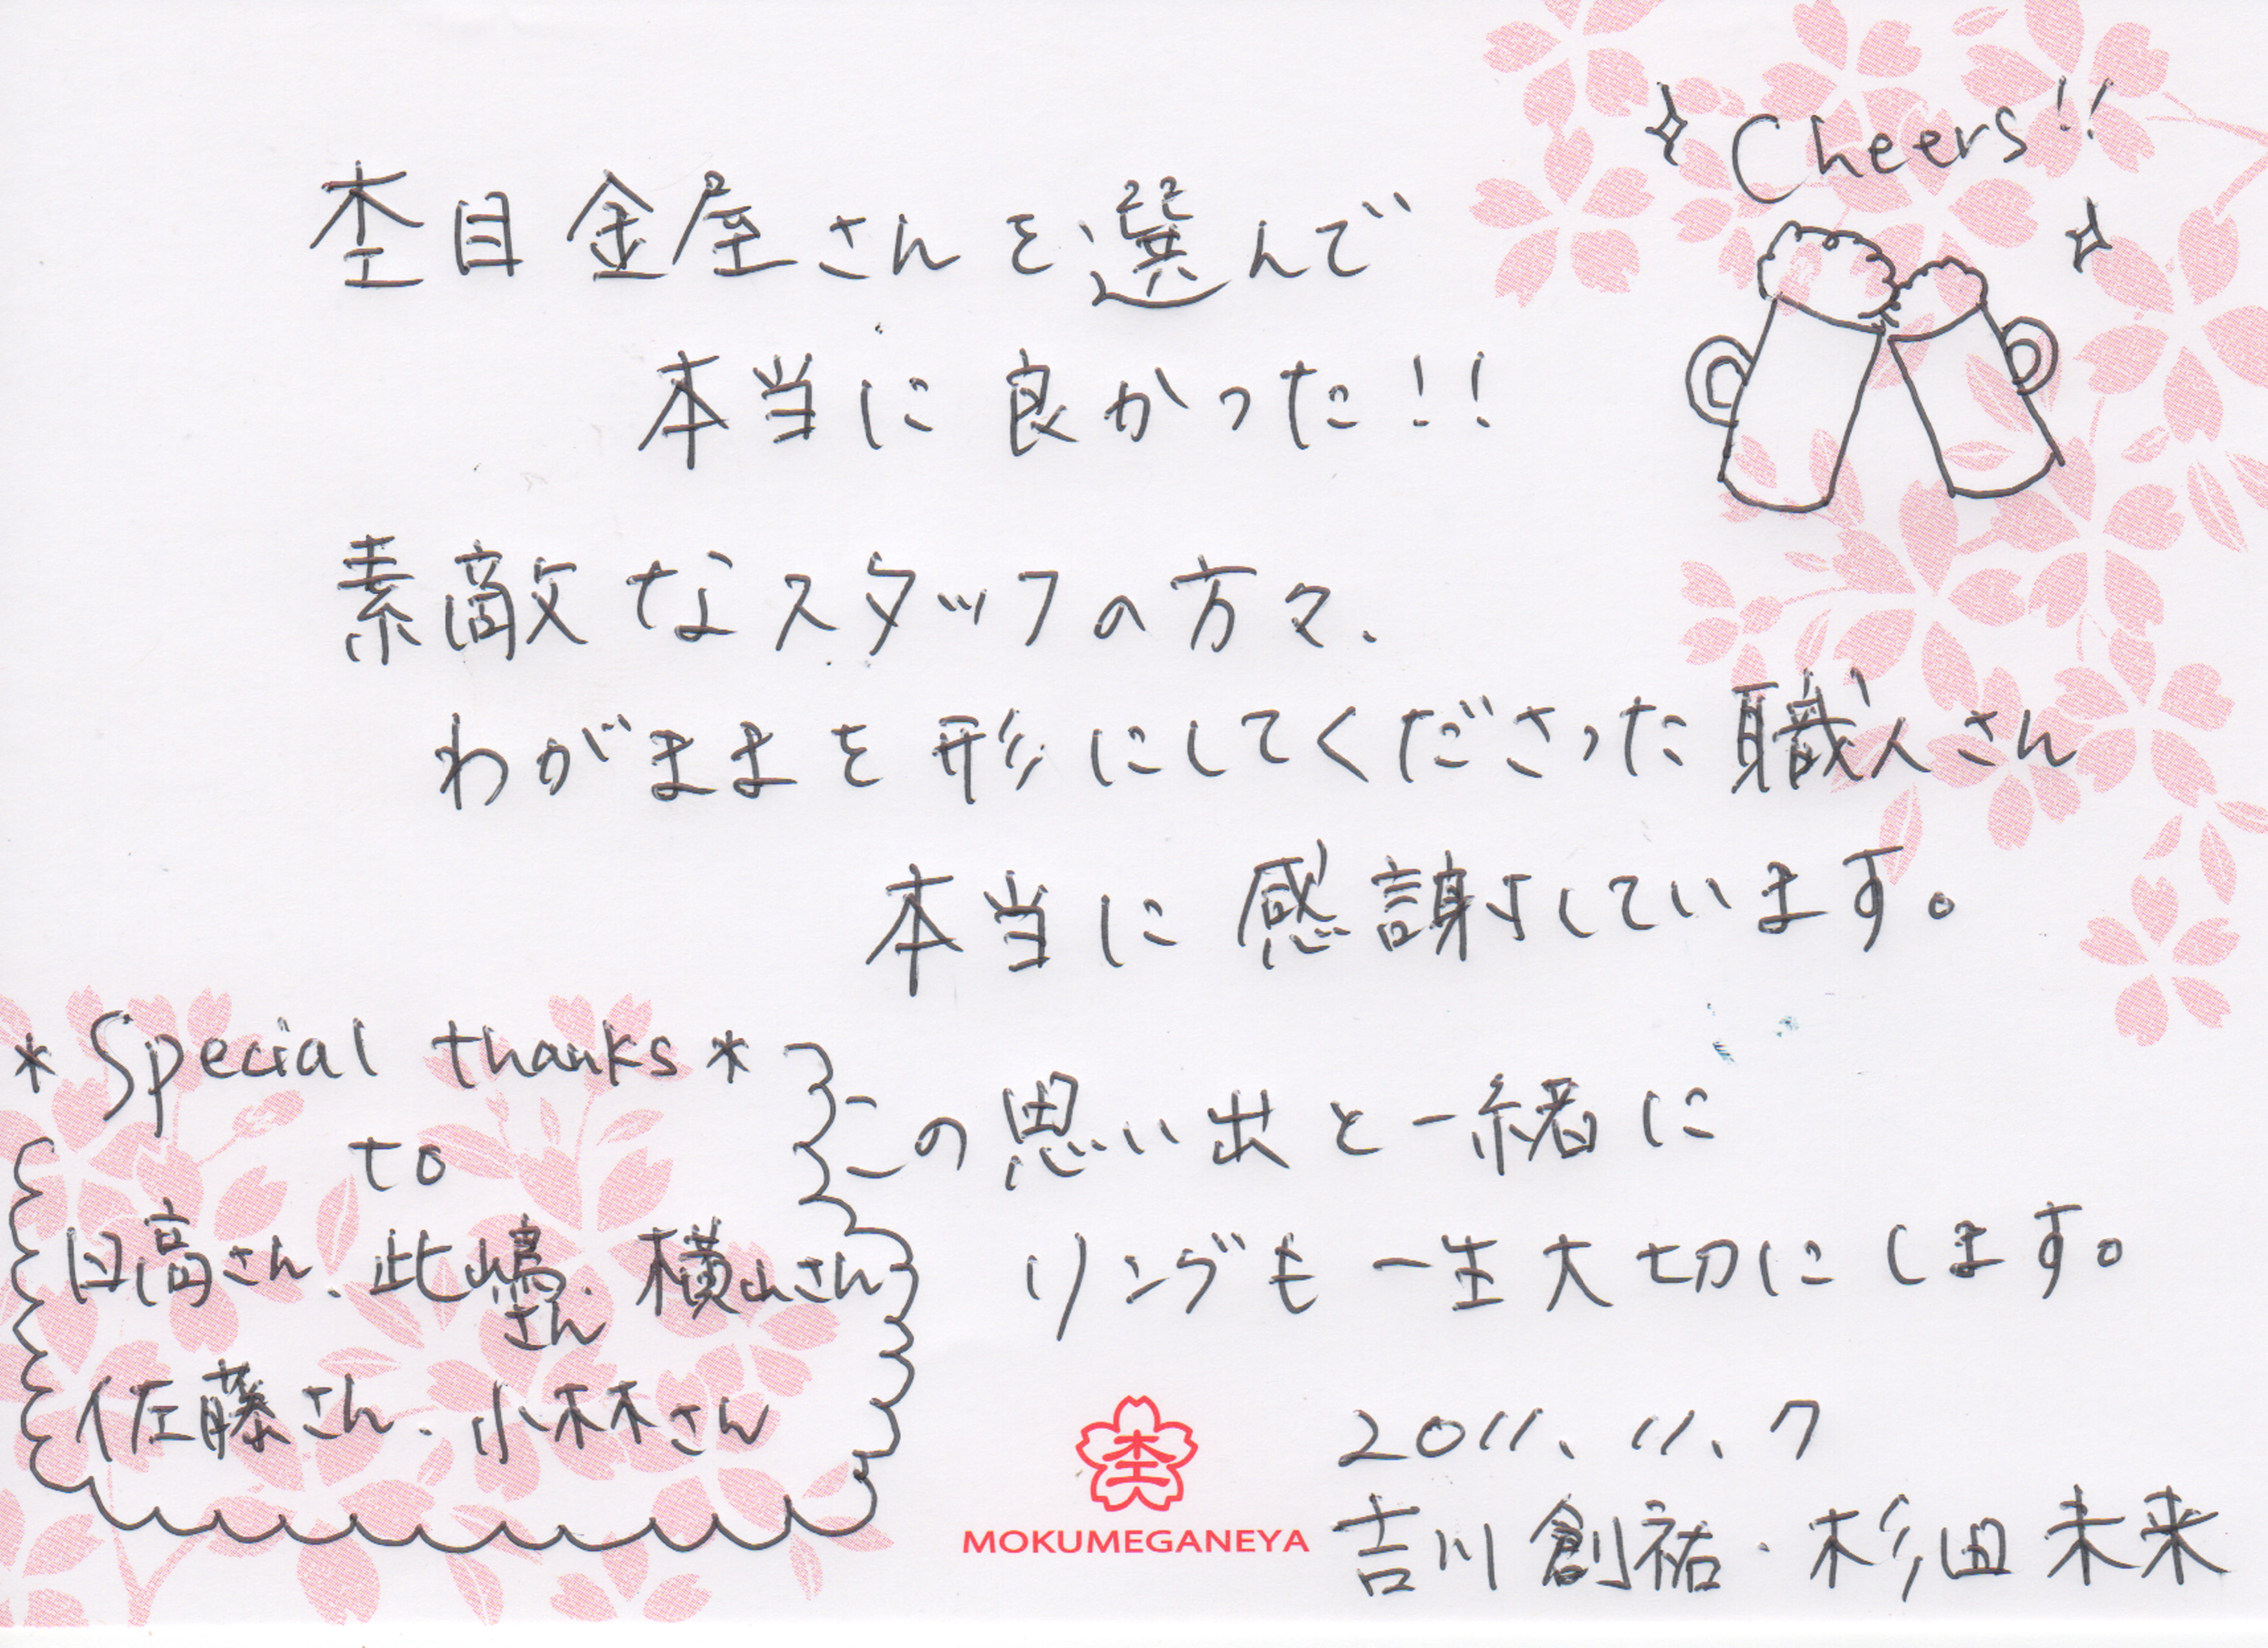 Cheers!!
杢目金屋さんを選んで
本当に良かった!!
素敵なスタッフの方々、
わがままを形にしてくださった職人さん
本当に感謝しています。
*Special thanks*
to
日高さん、此嶋さん、横山さん
佐藤さん、小林さん
この思い出と一緒に
リングも一生大切にします。
杢
MOKUMEGANEYA
2011.11.7
吉川創祐・杉田未来